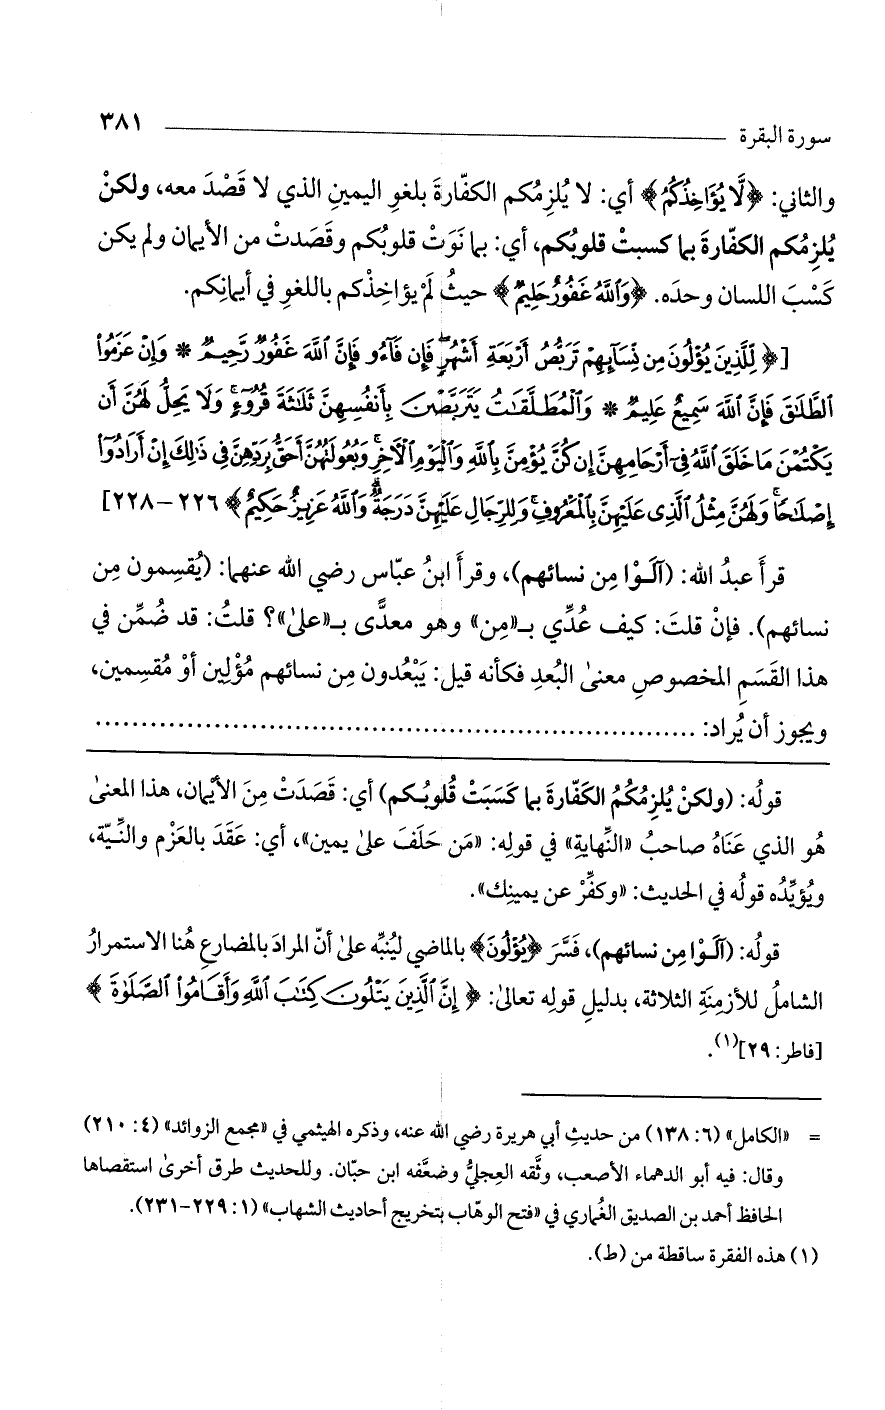 سورة البقرة ٣٨١
والثاني: ﴿لَّا يُؤَاخِذُكُمُ﴾ أي: لا يُلزِمُكم الكفّارةَ بلغوِ اليمينِ الذي لا قَصْدَ معه، ولكنْ
يُلزِمُكم الكفّارةَ بما كسبتْ قلوبُكم، أي: بما نَوَتْ قلوبُكم وقَصَدتْ من الأيمان ولم يكن
كَسْبَ اللسان وحدَه. ﴿وَٱللَّهُ غَفُورٌ حَلِيمٌ﴾ حيثُ لَمْ يؤاخِذْكم باللغوِ في أيمانِكم.
[﴿لِّلَّذِينَ يُؤْلُونَ مِن نِّسَآئِهِمْ تَرَبُّصُ أَرْبَعَةِ أَشْهُرٍۖ فَإِن فَآءُو فَإِنَّ ٱللَّهَ غَفُورٌ رَّحِيمٌ * وَإِنْ عَزَمُوا۟
ٱلطَّلَـٰقَ فَإِنَّ ٱللَّهَ سَمِيعٌ عَلِيمٌ * وَٱلْمُطَلَّقَـٰتُ يَتَرَبَّصْنَ بِأَنفُسِهِنَّ ثَلَـٰثَةَ قُرُوٓءٍۚ وَلَا يَحِلُّ لَهُنَّ أَن
يَكْتُمْنَ مَا خَلَقَ ٱللَّهُ فِىٓ أَرْحَامِهِنَّ إِن كُنَّ يُؤْمِنَّ بِٱللَّهِ وَٱلْيَوْمِ ٱلْـَٔاخِرِۚ وَبُعُولَتُهُنَّ أَحَقُّ بِرَدِّهِنَّ فِى ذَٰلِكَ إِنْ أَرَادُوٓا۟
إِصْلَـٰحًاۚ وَلَهُنَّ مِثْلُ ٱلَّذِى عَلَيْهِنَّ بِٱلْمَعْرُوفِۚ وَلِلرِّجَالِ عَلَيْهِنَّ دَرَجَةٌۗ وَٱللَّهُ عَزِيزٌ حَكِيمٌ﴾ ٢٢٦-٢٢٨]
قرأَ عبدُ الله: (آلَـوْا مِن نسائهم)، وقرأَ ابنُ عبّاس رضي الله عنهما: (يُقسِمون مِن
نسائهم). فإنْ قلتَ: كيف عُدِّي بـ«مِن» وهو معدًّى بـ«على»؟ قلتُ: قد ضُمِّن في
هذا القَسَمِ المخصوصِ معنى البُعدِ فكأنه قيل: يَبْعُدون مِن نسائهم مُؤْلِين أوْ مُقسِمين،
ويجوز أن يُراد: ................................................................
قولُه: (ولكنْ يُلزِمُكُمُ الكَفّارةَ بما كَسَبَتْ قُلوبُـكم) أي: قَصَدَتْ مِنَ الأَيْمان، هذا المعنى
هُو الذي عَنَاهُ صاحبُ «النِّهايةِ» في قولِه: «مَن حَلَفَ على يمين»، أي: عَقَدَ بالعَزْم والنِّـيّة،
ويُؤيِّدُه قولُه في الحديث: «وكفِّرْ عن يمينِك».
قولُه: (آلَـوْا مِن نسائهم)، فَسَّرَ ﴿يُؤْلُونَ﴾ بالماضي ليُنبِّه على أنّ المرادَ بالمضارعِ هُنا الاستمرارُ
الشاملُ للأزمِنةِ الثلاثة، بدليلِ قولِه تعالى: ﴿إِنَّ ٱلَّذِينَ يَتْلُونَ كِتَـٰبَ ٱللَّهِ وَأَقَامُوا۟ ٱلصَّلَوٰةَ﴾
[فاطر: ٢٩](١).
= «الكامل» (٦: ١٣٨) من حديثِ أبي هريرة رضي الله عنه، وذكره الهيثمي في «مجمع الزوائد» (٤: ٢١٠)
وقال: فيه أبو الدهماء الأصعب، وثَّقه العِجليُّ وضعَّفه ابن حبّان. وللحديث طرق أخرى استقصاها
الحافظ أحمد بن الصديق الغُماري في «فتح الوهّاب بتخريج أحاديث الشهاب» (١: ٢٢٩-٢٣١).
(١) هذه الفقرة ساقطة من (ط).